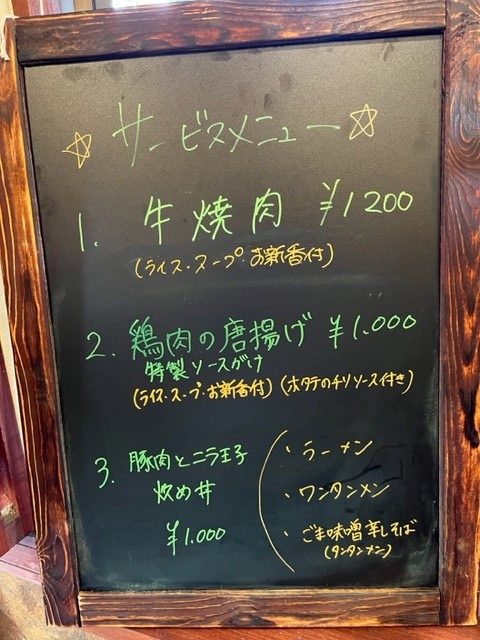 ☆ サービスメニュー ☆
1. 牛焼肉 ¥1200
(ライス・スープ・お新香付)
2. 鶏肉の唐揚げ ¥1.000
特製ソースがけ
(ライス・スープ・お新香付) (ホタテのチリソース付き)
3. 豚肉とニラ玉子
炒め丼
¥1.000
・ラーメン
・ワンタンメン
・ごま味噌辛しそば
(タンタンメン)